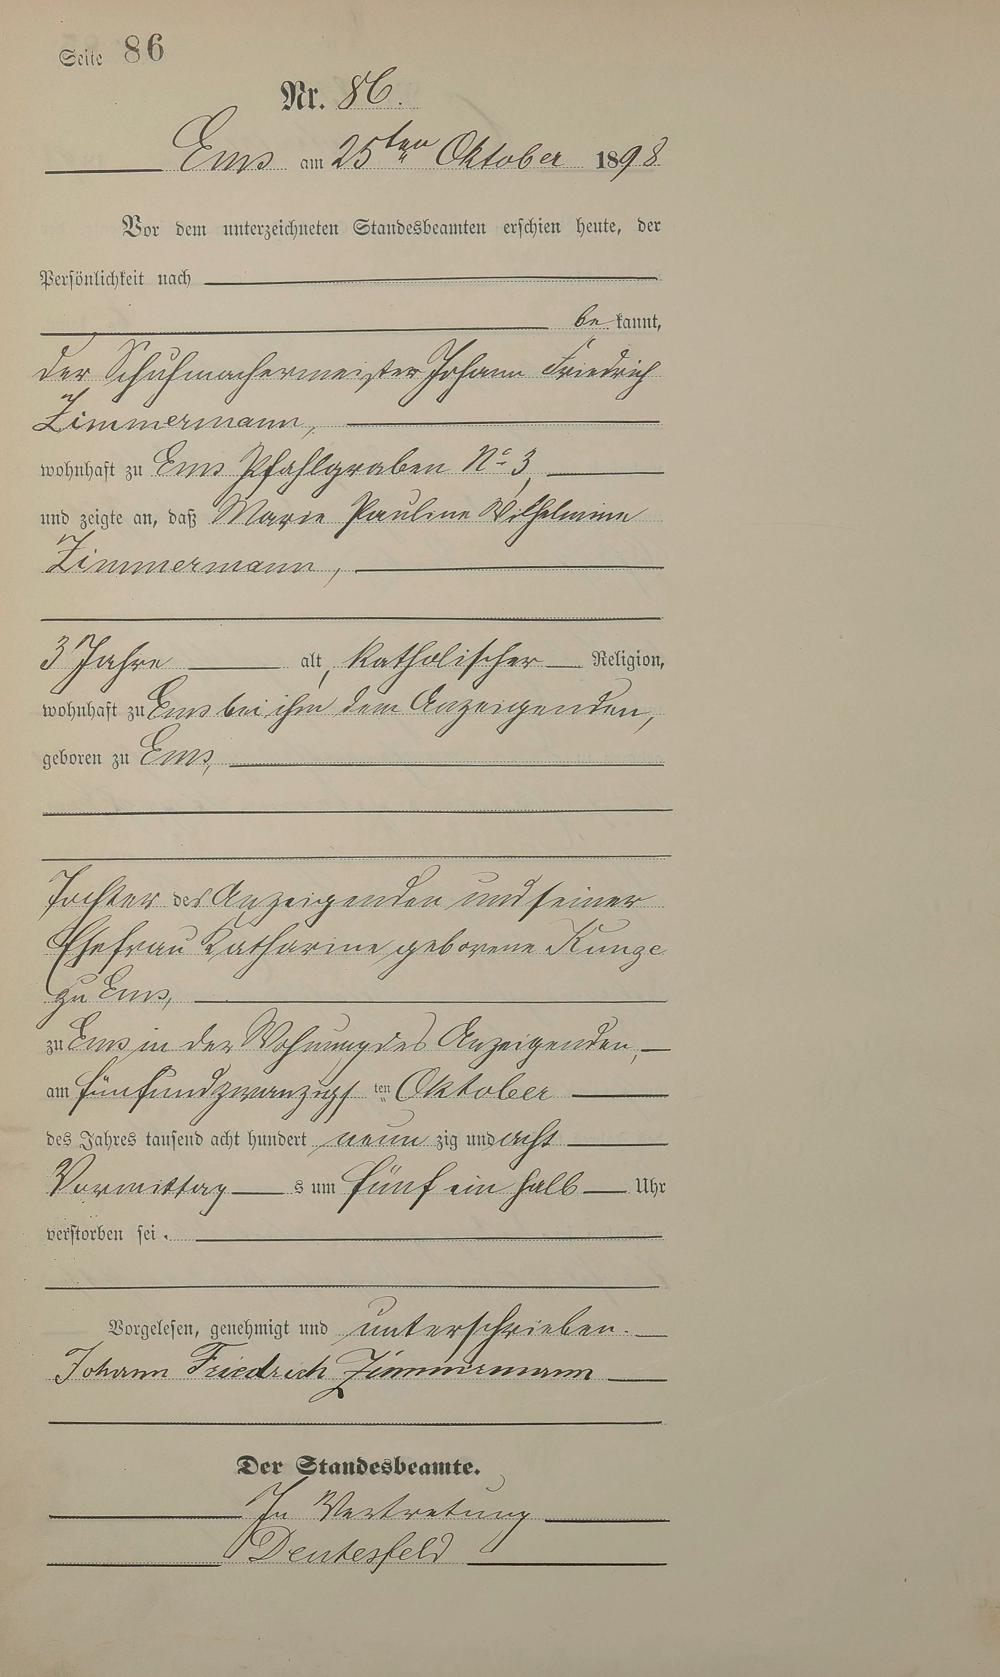 Seite 86
Nr. 86.
Ems am 25ten Oktober 1898
Vor dem unterzeichneten Standesbeamten erschien heute, der
Persönlichkeit nach
be kannt,
der Schuhmachermeister Johann Friedrich
Zimmermann,
wohnhaft zu Ems Pfahlgraben No 3,
und zeigte an, daß Marie Pauline Wilhelmine
Zimmermann,
3 Jahre alt, katholischer Religion,
wohnhaft zu Ems bei ihm dem Anzeigenden,
geboren zu Ems,
Tochter des Anzeigenden und seiner
Ehefrau Katharine geborene Kunze
zu Ems,
zu Ems in der Wohnung des Anzeigenden,
am fünfundzwanzigs ten Oktober
des Jahres tausend acht hundert neun zig und acht
Vormittag s um fünf ein halb Uhr
verstorben sei.
Vorgelesen, genehmigt und unterschrieben.
Johann Friedrich Zimmermann
Der Standesbeamte.
In Vertretung
Deutesfeld